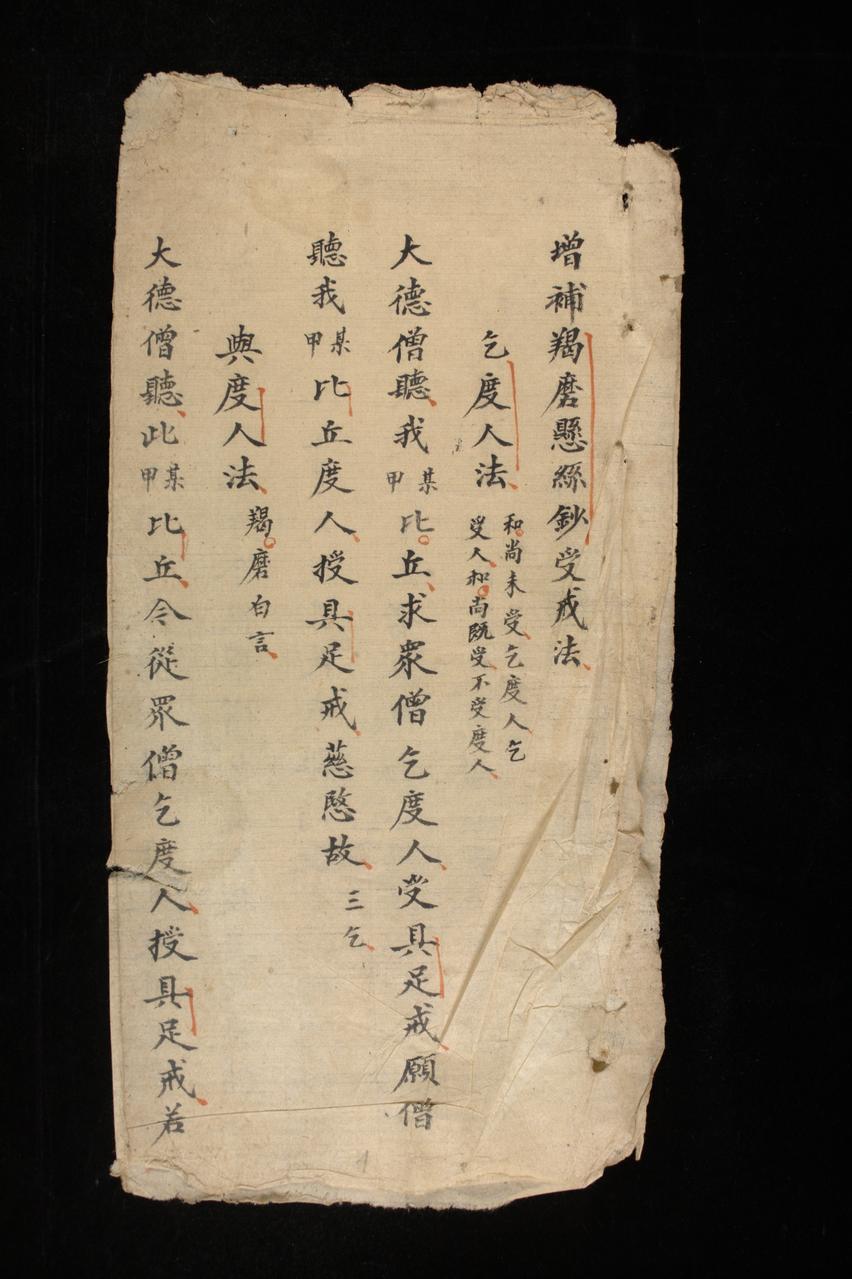 增補羯磨懸絲鈔受戒法
乞度人法
和尚未受乞度人乞
受人和尚既受不受度人
大德僧聽我某甲比丘求眾僧乞度人受具足戒願僧
聽我某甲比丘度人授具足戒慈愍故三乞
與度人法羯磨白言
大德僧聽此某甲比丘今從眾僧乞度人授具足戒若